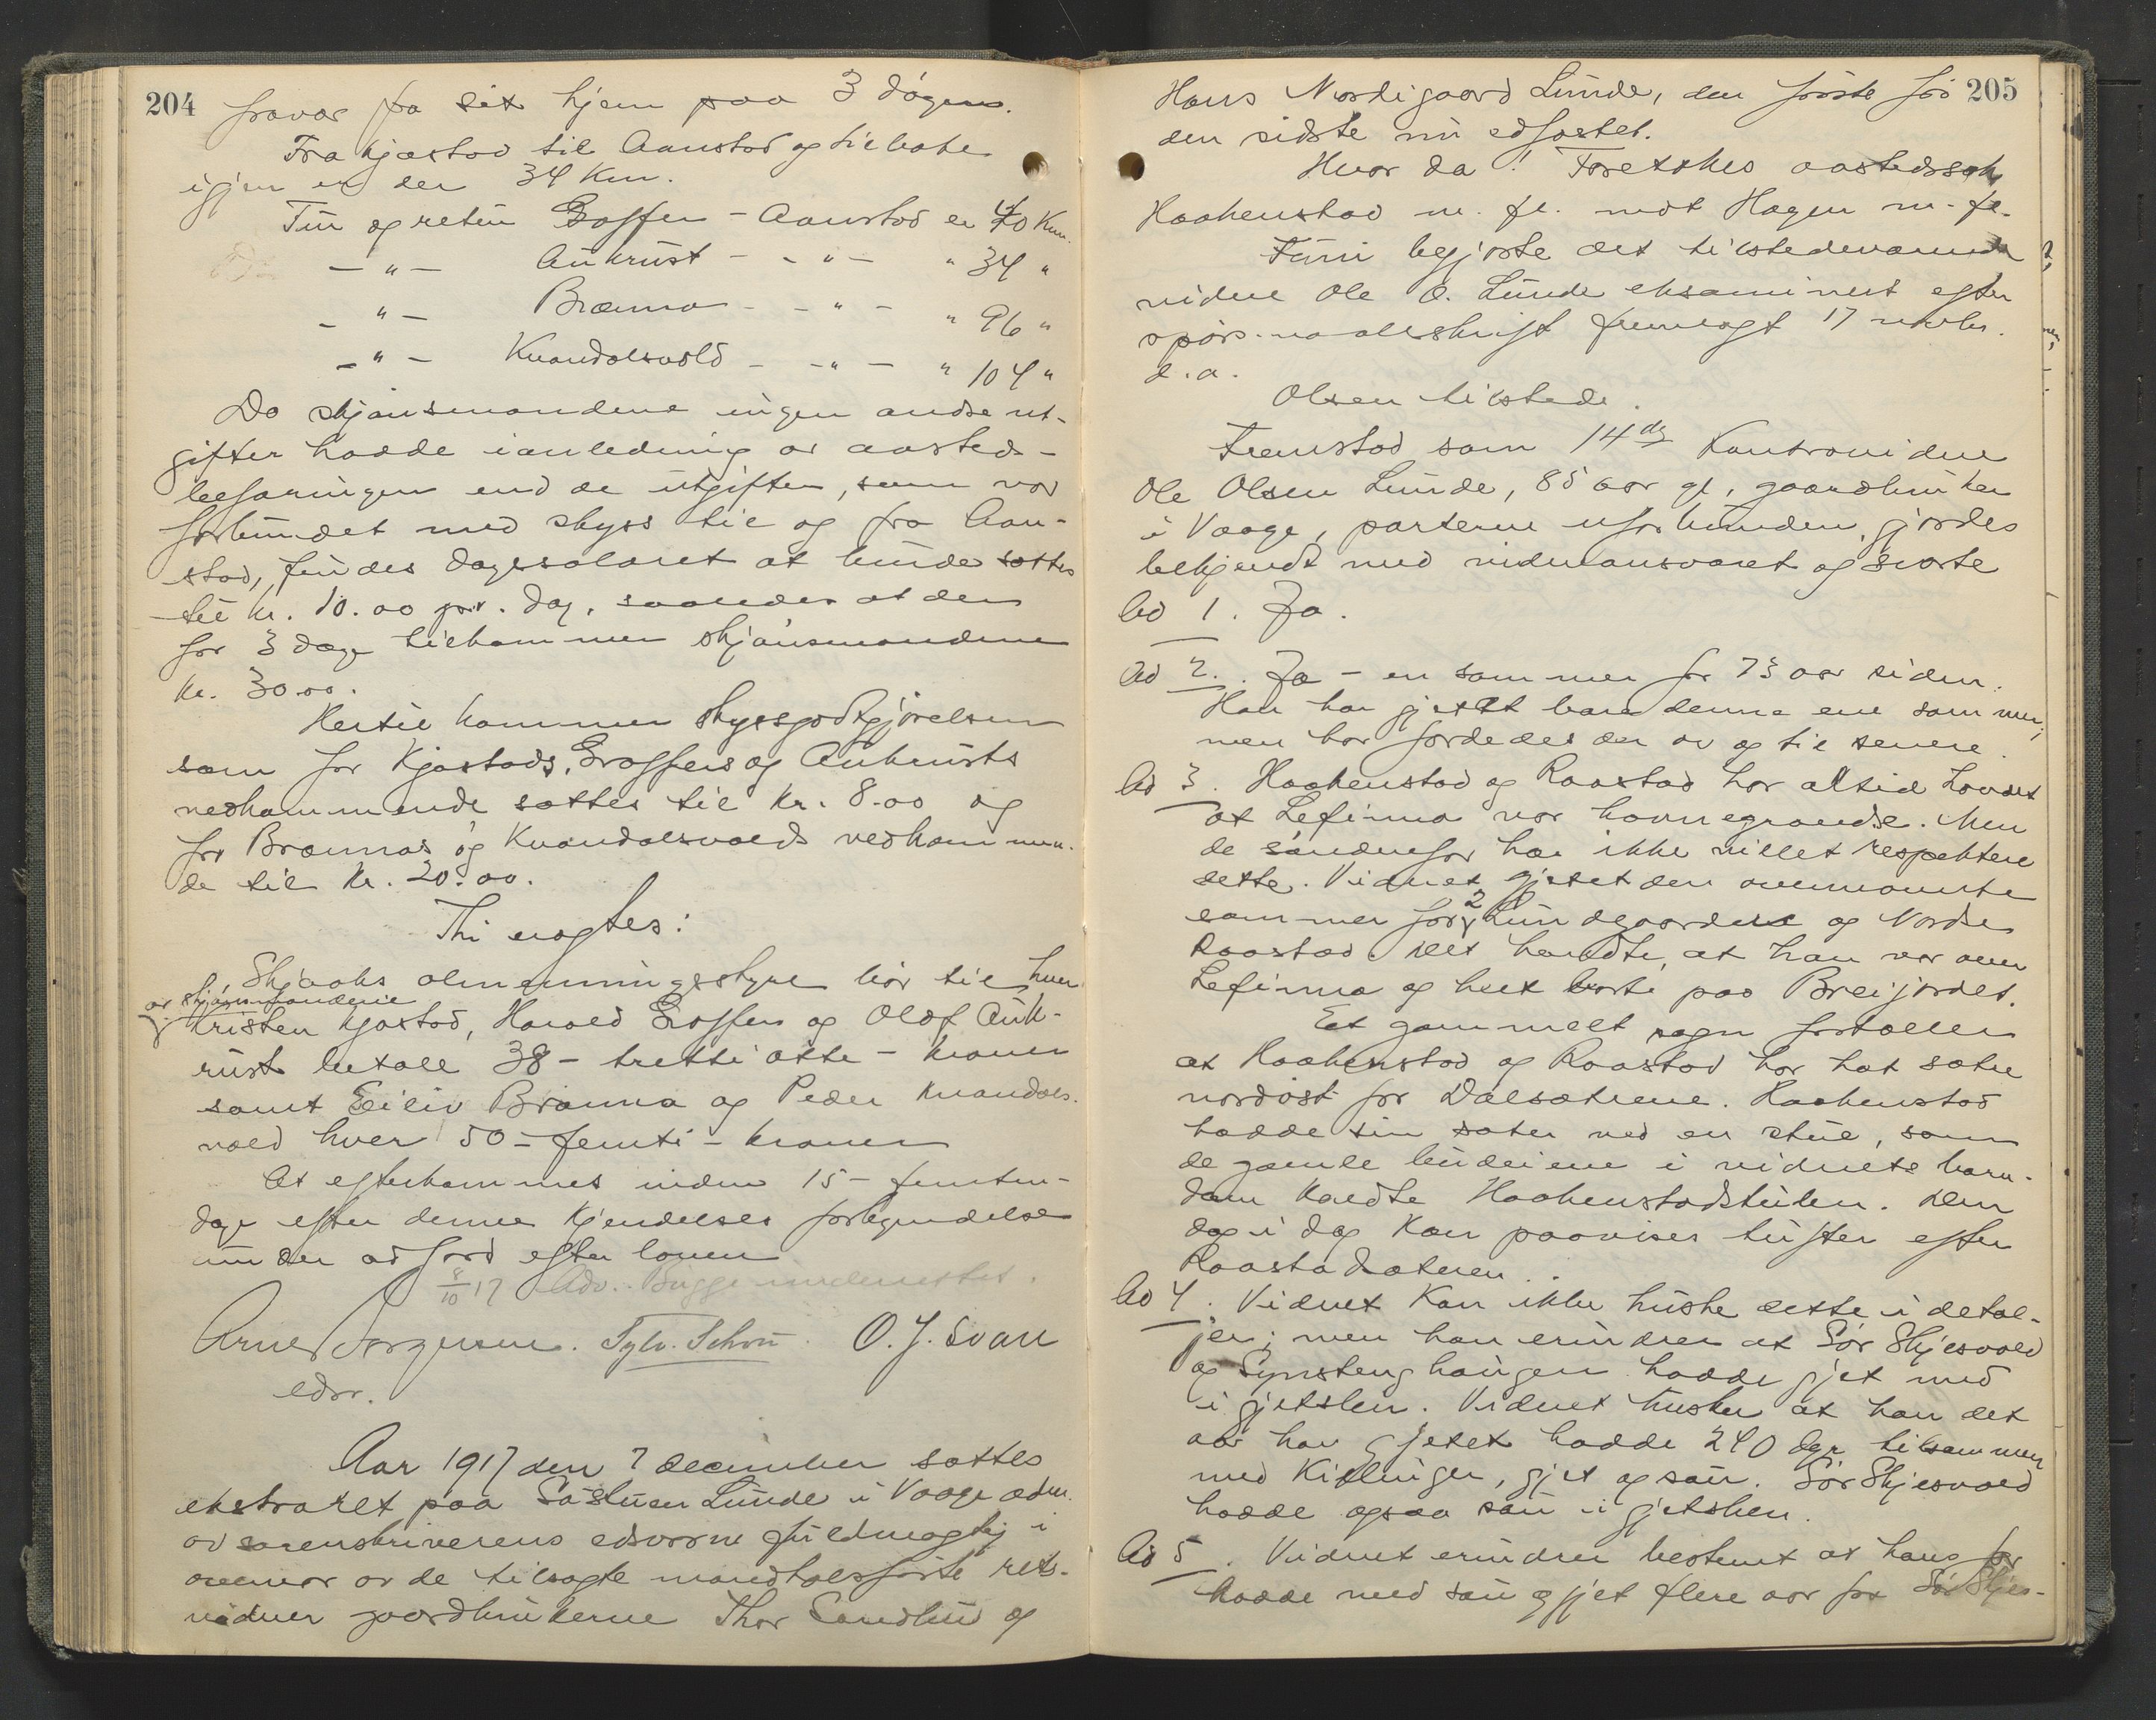 204
fravær fra sit hjem paa 3 døgn.
Fra Kjæstad til Aanstad og tilbake
igjen er der 34 Km.
Tur og retur Graffer - Aanstad er 40 Km.
— " — Aukrust — " — " 34 "
— " — Brænna — " — " 96 "
— " — Kvandalsvold — " — " 104 "
Da skjønsmændene ingen andre ut-
gifter hadde i anledning av aasteds-
befaringen end de utgifter, som var
forbundet med skyss til og fra Aan-
stad, findes dagsalæret at burde sættes
til kr. 10.00 pr. dag, saaledes at der
for 3 dage tilkommer skjønsmændene
kr. 30.00.
Hertil kommer skyssgodtgjørelsen
som for Kjæstads, Graffers og Aukrusts
vedkommende sættes til kr. 8.00 og
for Brænnas og Kvandalsvolds vedkommen-
de til kr. 20.00.
Thi eragtes:
Skjaaks almenningsstyre bør til hver
av skjønsmændene
Kristen Kjæstad, Harald Graffer og Olaf Auk-
rust betale 38 - trettiotte - kroner
samt Eiliv Brænna og Peder Kvandals-
vold hver 50 - femti - kroner
At efterkommes inden 15 - femten -
dage efter denne kjendelses forkyndelse
under adfærd efter loven
8/10 17 Adv. Bugge underrettet.
Arne Jørgensen. Sylv. Schou. O. J. Svare
edsv.
Aar 1917 den 7 december sattes
ekstraret paa Søstuen Lunde i Vaage adm.
av sorenskriverens edsvorne fuldmægtig i
overvær av de tilsagte mandtalsførte rets-
vidner gaardbrukerne Thor Sandbu og
205
Hans Nordigaard Lunde, den første før
den sidste nu edfæstet.
Hvor da! Foretokes aastedssak
Haakenstad m. fl. mot Hagen m. fl.
Færri begjærte det tilstedeværende
vidne Ole O. Lunde eksaminert efter
spørsmaalsskrift fremlagt 17 novbr.
d. a.
Olsen tilstede.
Fremstod som 14de Kontravidne
Ole Olsen Lunde, 85 aar gl., gaardbruker
i Vaage, parterne uforbunden, gjordes
bekjendt med vidneansvaret og svarte
Ad 1. Ja.
Ad 2. Ja - en sommer for 73 aar siden.
Han har gjætt bare denne ene sommer;
men har færdedes der av og til senere.
Ad 3. Haakenstad og Raastad har altid hævdet
at Lefinna var havnegrændse. Men
de søndenfor har ikke villet respektere
dette. Vidnet gjætet den ovennævnte
sommer for 2 Lundegaardene og Nordre
Raastad. Det hændte, at han var over
Lefinna og helt borte paa Breijordet.
Et gammelt sagn fortæller
at Haakenstad og Raastad har hat sæter
nordøst for Dalsætrene. Haakenstad
hadde sin sæter ved en stule, som
de gamle budeiene i vidnets barn-
dom kaldte Haakenstadstulen. Den
dag i dag kan paavises tufter efter
Raastadsæteren.
Ad 4. Vidnet kan ikke huske dette i detal-
jer; men han erindrer at Sør Skjesvold
og Synstenghaugen hadde gjet med
i gjetslen. Vidnet husker at han det
aar han gjetet hadde 240 dyr tilsammen
med Killinger, gjet og sau. Sør Skjesvold
hadde ogsaa sau i gjetslen.
Ad 5. Vidnet erindrer bestemt at hans far
hadde med sau og gjet flere aar for Sør Skjes-